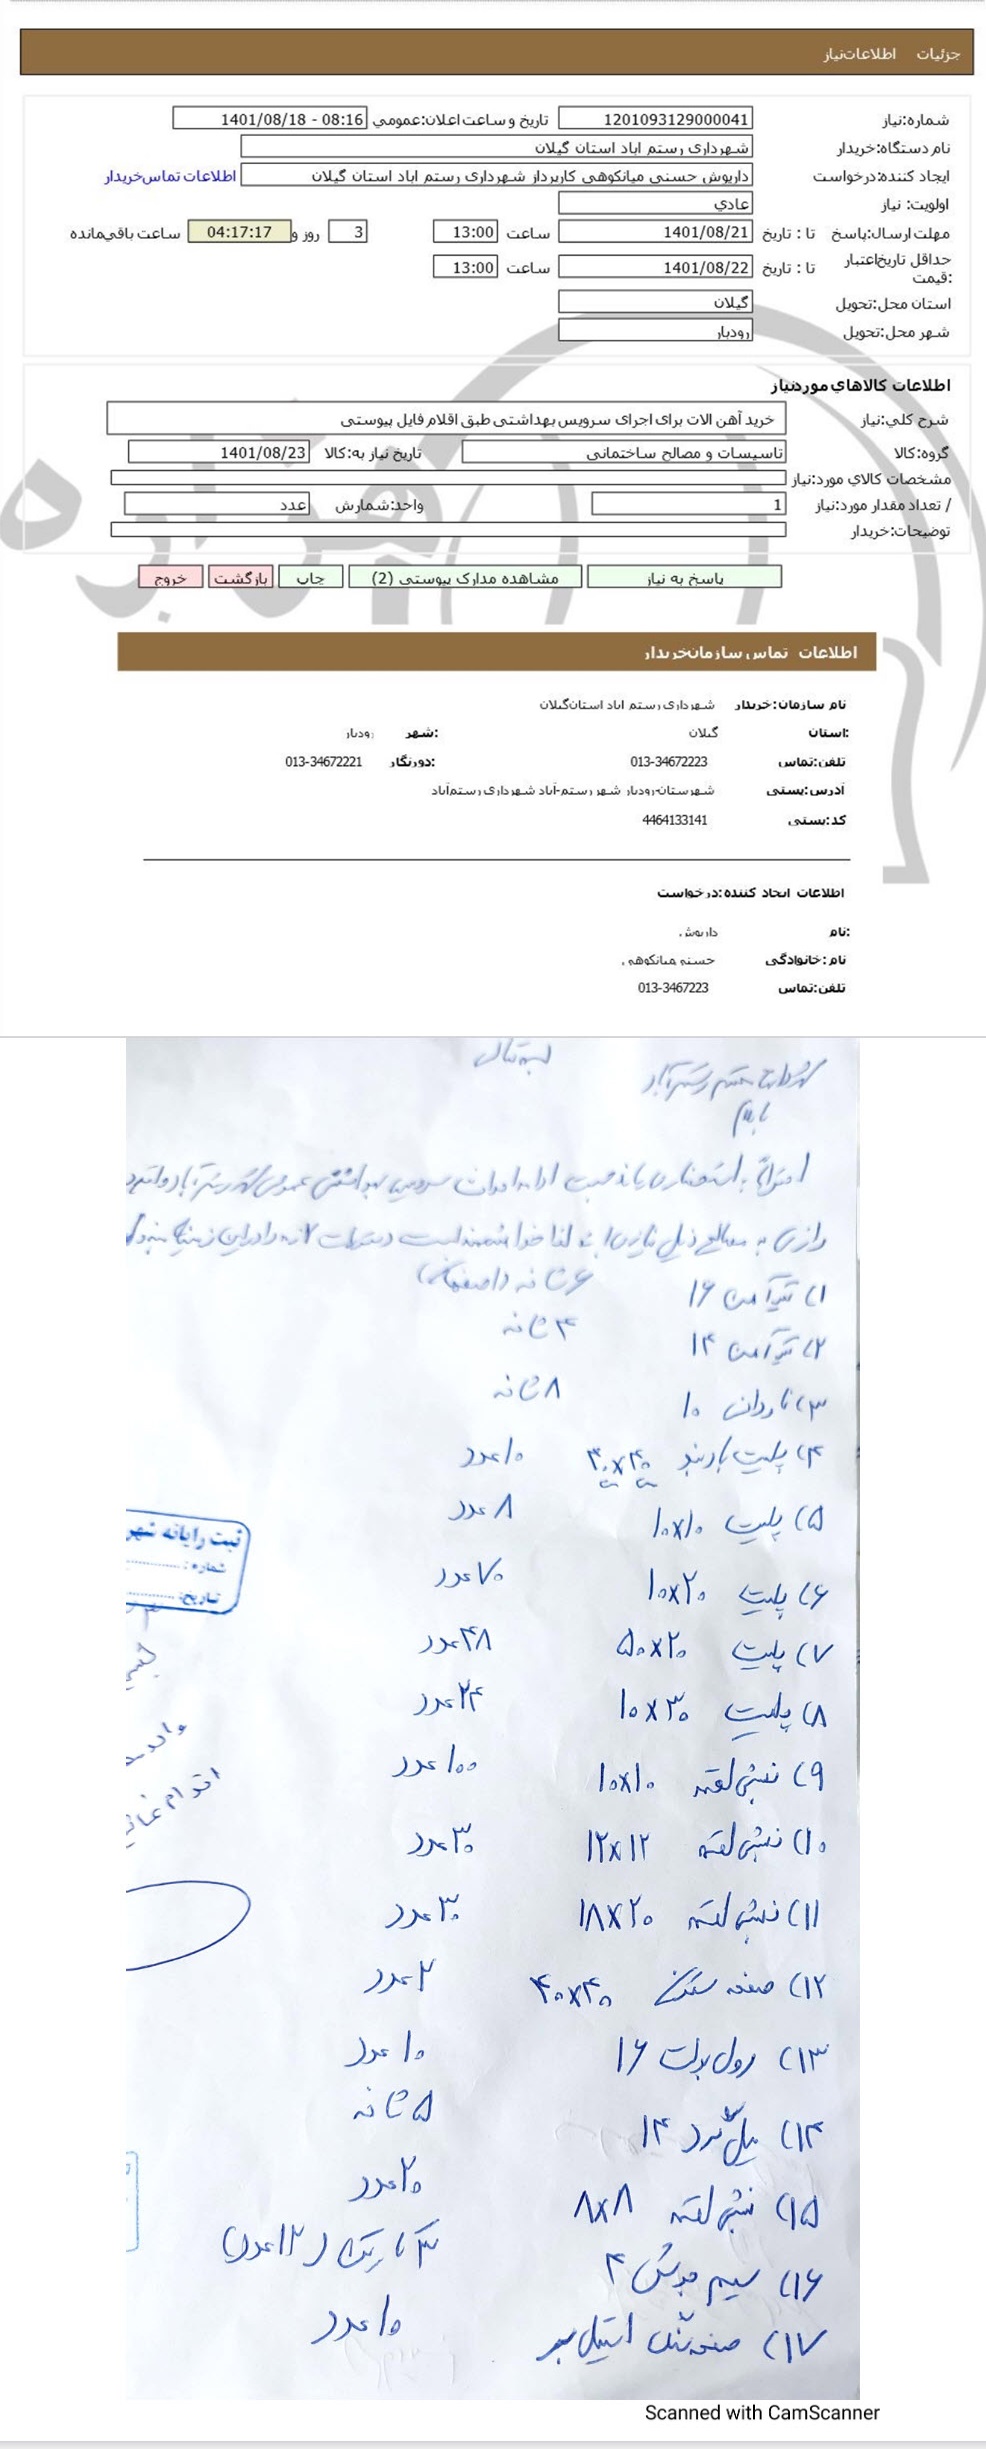 جزئیات اطلاعات‌نیاز
شماره:نیاز 1201093129000041 تاریخ و ساعت اعلان:عمومي 1401/08/18 - 08:16
نام دستگاه:خریدار شهرداری رستم اباد استان گیلان
ایجاد کننده:درخواست داریوش حسنی میانکوهی کارپرداز شهرداری رستم اباد استان گیلان اطلاعات تماس‌خریدار
اولویت: نیاز عادي
مهلت ارسال:پاسخ تا : تاریخ 1401/08/21 ساعت 13:00 3 روز و 04:17:17 ساعت باقی‌مانده
حداقل تاریخ‌اعتبار تا : تاریخ 1401/08/22 ساعت 13:00
:قیمت
استان محل:تحویل گیلان
شهر محل:تحویل رودبار
اطلاعات کالاهاي موردنیاز
شرح کلي:نیاز خرید آهن الات برای اجرای سرویس بهداشتی طبق اقلام فایل پیوستی
گروه:کالا تاسیسات و مصالح ساختمانی تاریخ نیاز به:کالا 1401/08/23
مشخصات کالاي مورد:نیاز
/ تعداد مقدار مورد:نیاز 1 واحد:شمارش عدد
توضیحات:خریدار
پاسخ به نیاز مشاهده مدارک پیوستی (2) چاپ بازگشت خروج
اطلاعات تماس سازمان‌خریدار
نام سازمان:خریدار شهرداری رستم اباد استان‌گیلان
:استان گیلان :شهر رودبار
تلفن:تماس 013-34672223 :دورنگار 013-34672221
آدرس:پستی شهرستان-رودبار شهر رستم-آباد شهرداری رستم‌آباد
کد:پستی 4464133141
اطلاعات ایجاد کننده:درخواست
:نام داریوش
نام:خانوادگی حسنی میانکوهی
تلفن:تماس 013-3467223
با سلام
۱) تیرآهن ۱۶ ۶ شاخه (اصفهان)
۲) تیرآهن ۱۴ ۴ شاخه
۳) ناودان ۱۰ ۸ شاخه
۴) پلیت ۴۰x۴۰ ۱۰ عدد
۵) پلیت ۱۰x۱۰ ۸ عدد
۶) پلیت ۱۰x۲۰ ۷۰ عدد
۷) پلیت ۵۰x۲۰ ۴۸ عدد
۸) پلیت ۱۰x۳۰ ۲۴ عدد
۹) نبشی لقمه ۱۰x۱۰ ۱۰۰ عدد
۱۰) نبشی لقمه ۱۲x۱۲ ۳۰ عدد
۱۱) نبشی لقمه ۱۸x۲۰ ۳۰ عدد
۱۲) صفحه ۴۰x۴۰ ۲ عدد
۱۳) رول بولت ۱۶ ۱۰ عدد
۱۴) میل گرد ۱۴ ۵ شاخه
۱۵) نبشی لقمه ۸x۸ ۲۰ عدد
۱۶) سیم جوش ۴ ۳ کارتن (۱۲ عدد)
۱۷) صفحه سنگ استیل بر ۱۰ عدد
ثبت رایانه شهر
شماره :
تاریخ:
اقدام
Scanned with CamScanner